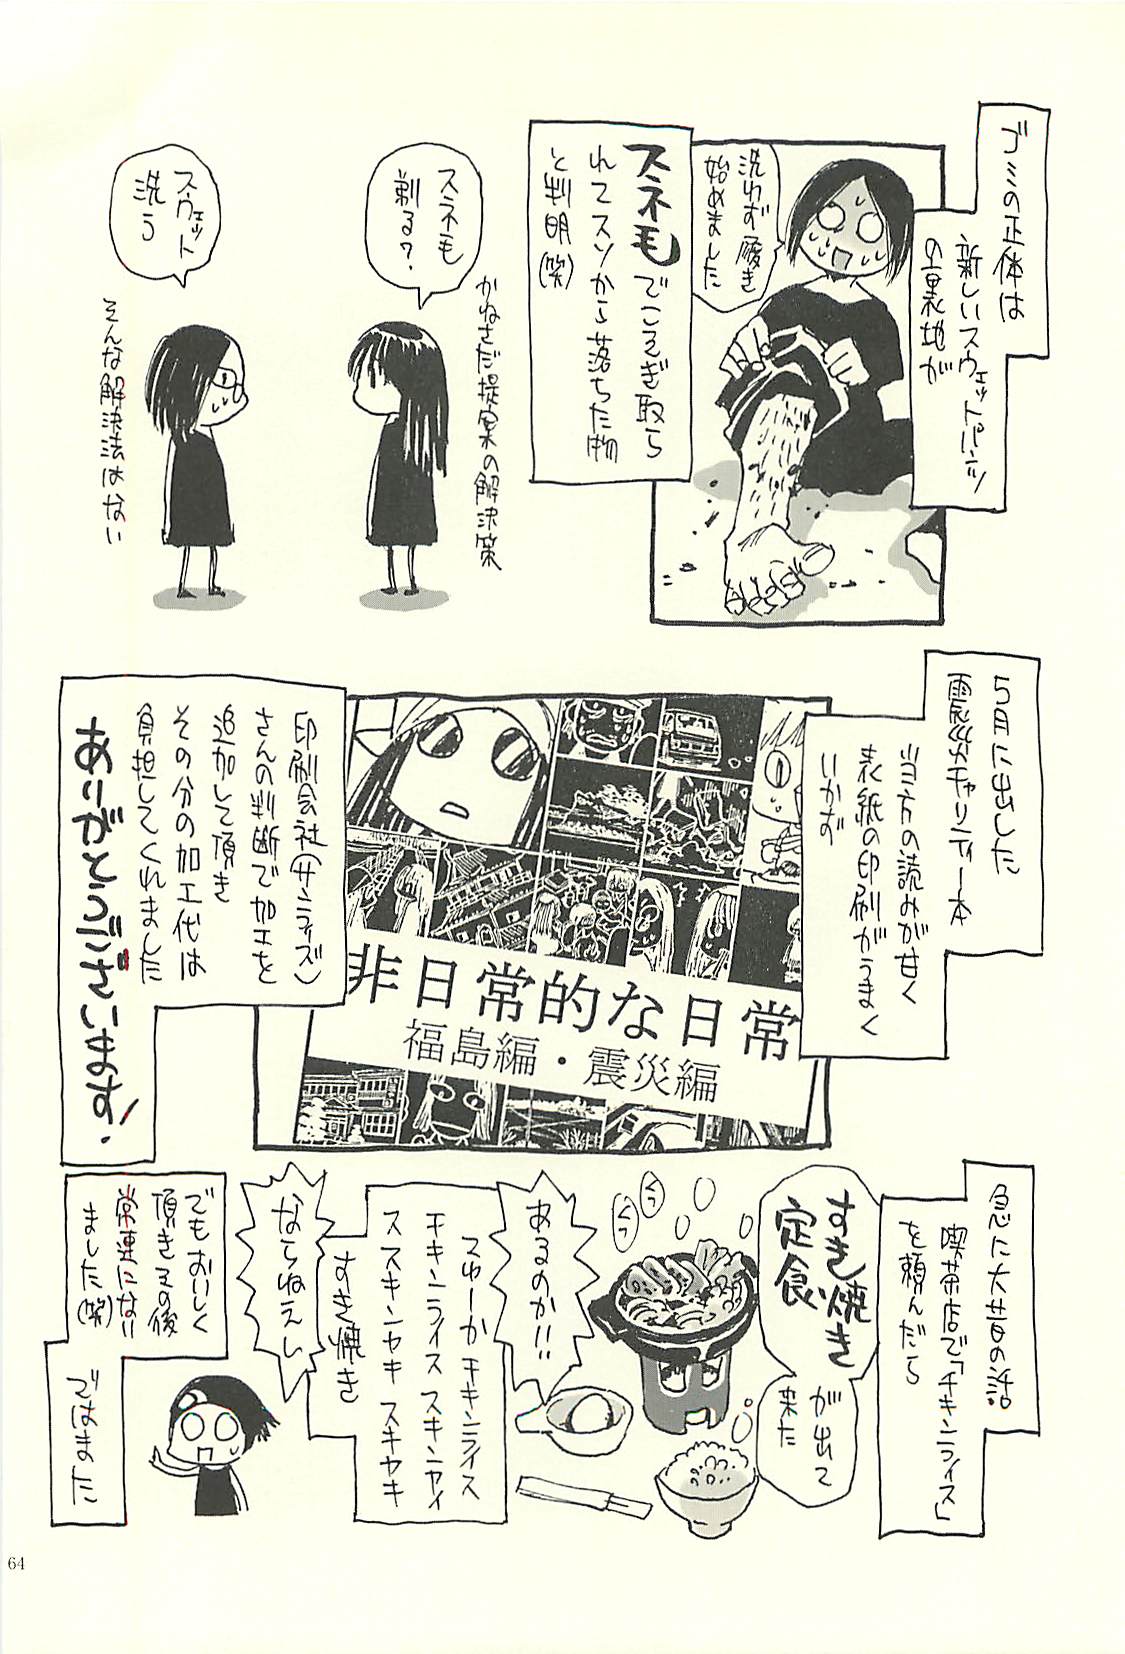 ゴミの正体は
新しいスウェットパンツ
の裏地が
洗わず履き
始めました
スネ毛でこそぎ取ら
れてスソから落ちた物
と判明(笑)
スネも
剃る?
かねさだ提案の解決策
スウェット
洗う
そんな解決法はない
5月に出した
震災チャリティー本
当方の読みが甘く
表紙の印刷がうまく
いかず
非日常的な日常
福島編・震災編
印刷会社(サンライズ)
さんの判断で加工を
追加して頂き
その分の加工代は
負担してくれました
ありがとうございます!
急に大昔の話
喫茶店で「チキンライス」
を頼んだら
すき焼き
定食
が出て
来た
くつ
くつ
あるのか!!
つゆーかチキンライス
チキンライス スキンヤイ
ススキンヤキ スキヤキ
すき焼き
ならねえし
でもおいしく
頂きその後
常連になり
ました(笑)
ではまた
64